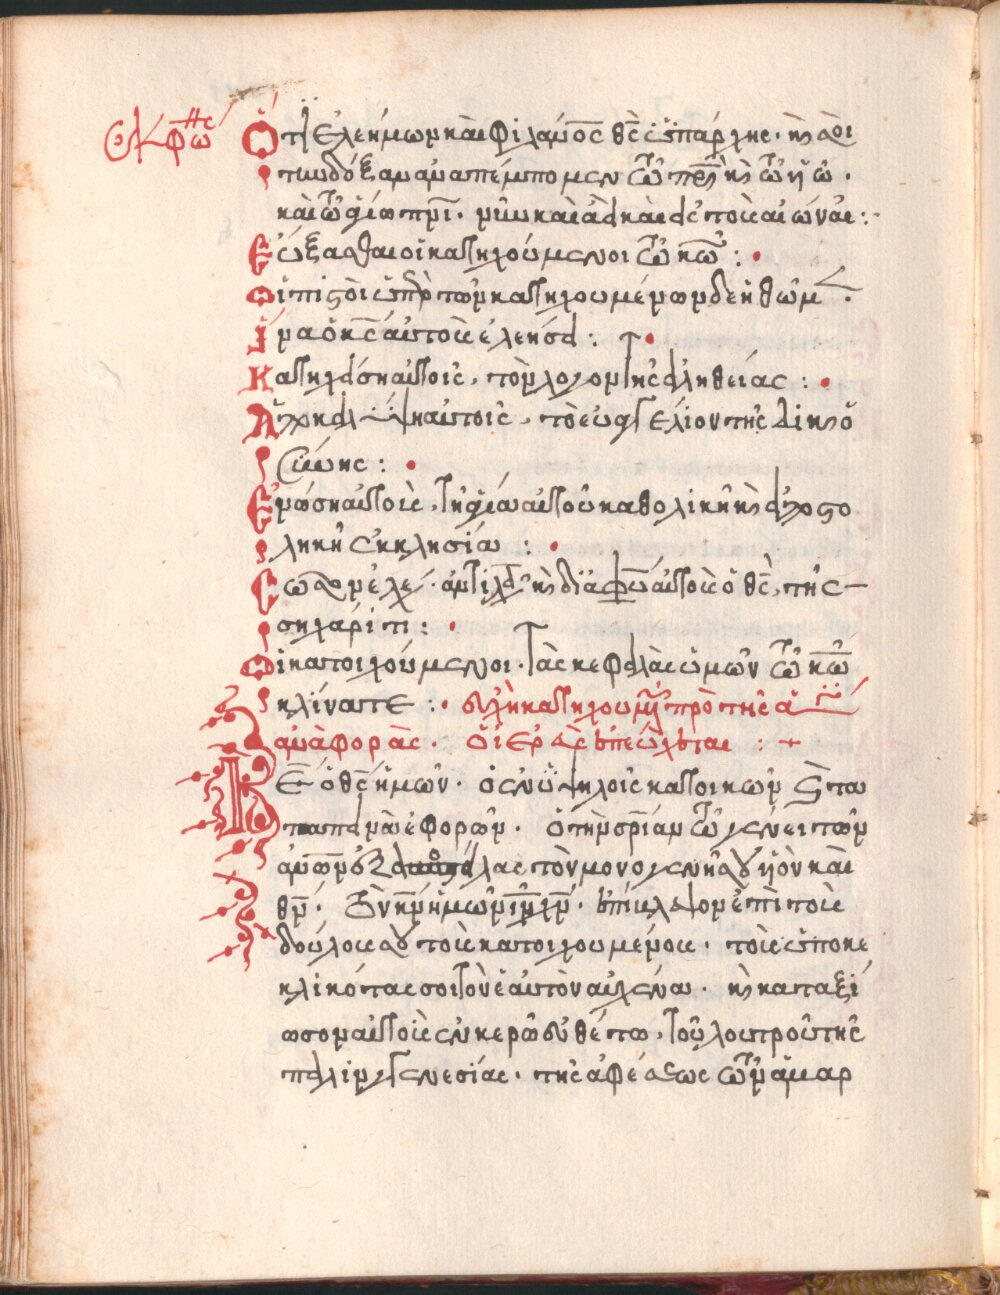 ἐκφώ
Ὅτι ἐλεήμων καὶ φιλάνος θς ὑπάρχης· κ σοὶ
τὴν δόξαν ἀναπέμπομεν τῶ πρι κ τῶ υἱῶ·
καὶ τῶ ἁγίω πνι· νῦν καὶ ἀεὶ καὶ εἰς τοὺς αἰώνας:
Εὔξασθαι οἱ κατηχούμενοι τῶ κω:
Οἱ πιστοὶ ὑπὲρ τῶν κατηχουμένων δεηθῶμ
Ἵνα ὁ κς αὐτοὺς ἐλεήσει:
Κατηχείση αὐτοὺς, τὸν λόγον τῆς ἀληθείας:
Ἀποκαλύψη αὐτοῖς, τὸ εὐαγγέλιον τῆς δικαιο
σύνης:
Ἑνώση αὐτοὺς, τῆ ἁγία αὐτοῦ καθολικῆ κ ἀποστο
λικῆ ἐκκλησία:
Σῶσον ἐλέ· ἀντιλα κ διαφύ αὐτοὺς ὁ θς, τῆ σ
ση χάριτι:
Οἱ κατοιχούμενοι· τὰς κεφαλὰς ὑμῶν τῶ κω
κλίνατε: εὐχὴ κατηχουμ πρὸ τῆς ἁγί
ἀναφορᾶς· Ὁ ἱερεὺς ἐπεύχεται:+
Κε ὁ θς ἡμῶν· ὁ ἐν ὑψηλοῖς κατοικῶν κ τὰ
ταπεινὰ ἐφορῶν· ὁ τὴν σριαν τῶ γένει τῶν
ἀνων ἐξαποστείλας τὸν μονογενῆ σου υἱὸν καὶ
θν· τὸν κν ἡμῶν ιν χν· ἐπίβλεψον ἐπὶ τοὺς
δούλους σου τοὺς κατοιχουμένους· τοὺς ὑποκε
κλικότας σοι τὸν ἑαυτὸν αὐχένα· κ καταξί
ωσον αὐτοὺς ἐν καιρῶ εὐθέτω, τοῦ λουτροῦ τῆς
παλιγγενεσίας· τῆς ἀφέσεως τῶν ἁμαρ